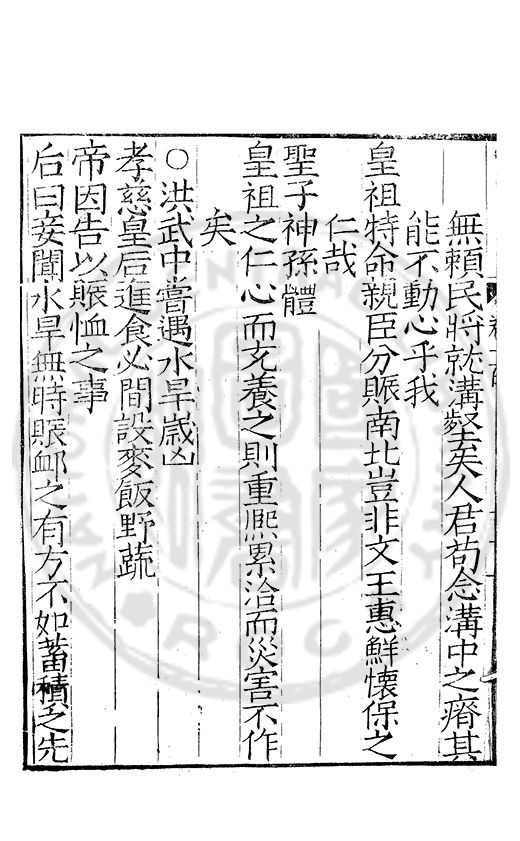 無賴民將就溝壑矣人君苟念溝中之瘠其
能不動心乎我
皇祖特命親臣分賑南北豈非文王惠鮮懷保之
仁哉
聖子神孫體
皇祖之仁心而充養之則重熙累洽而災害不作
矣
○洪武中嘗遇水旱歲凶
孝慈皇后進食必間設麥飯野蔬
帝因告以賑恤之事
后曰妾聞水旱無時賑卹之有方不如蓄積之先